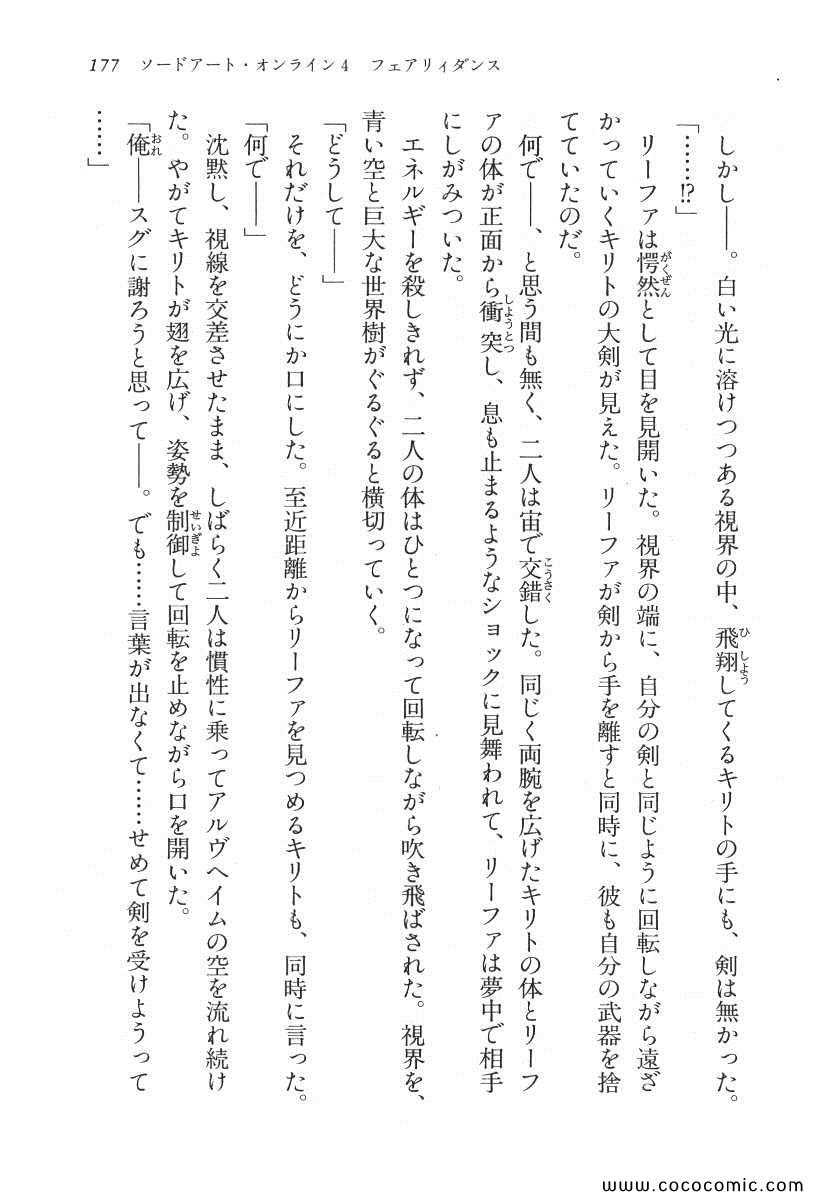 177　ソードアート・オンライン4　フェアリィダンス
　しかし──。白い光に溶けつつある視界の中、飛翔してくるキリトの手にも、剣は無かった。
「……!?」
　リーファは愕然として目を見開いた。視界の端に、自分の剣と同じように回転しながら遠ざ
かっていくキリトの大剣が見えた。リーファが剣から手を離すと同時に、彼も自分の武器を捨
てていたのだ。
　何で──、と思う間も無く、二人は宙で交錯した。同じく両腕を広げたキリトの体とリーフ
ァの体が正面から衝突し、息も止まるようなショックに見舞われて、リーファは夢中で相手
にしがみついた。
　エネルギーを殺しきれず、二人の体はひとつになって回転しながら吹き飛ばされた。視界を、
青い空と巨大な世界樹がぐるぐると横切っていく。
「どうして──」
　それだけを、どうにか口にした。至近距離からリーファを見つめるキリトも、同時に言った。
「何で──」
　沈黙し、視線を交差させたまま、しばらく二人は慣性に乗ってアルヴヘイムの空を流れ続け
た。やがてキリトが翅を広げ、姿勢を制御して回転を止めながら口を開いた。
「俺──スグに謝ろうと思って──。でも……言葉が出なくて……せめて剣を受けようって
……」
www.cococomic.com